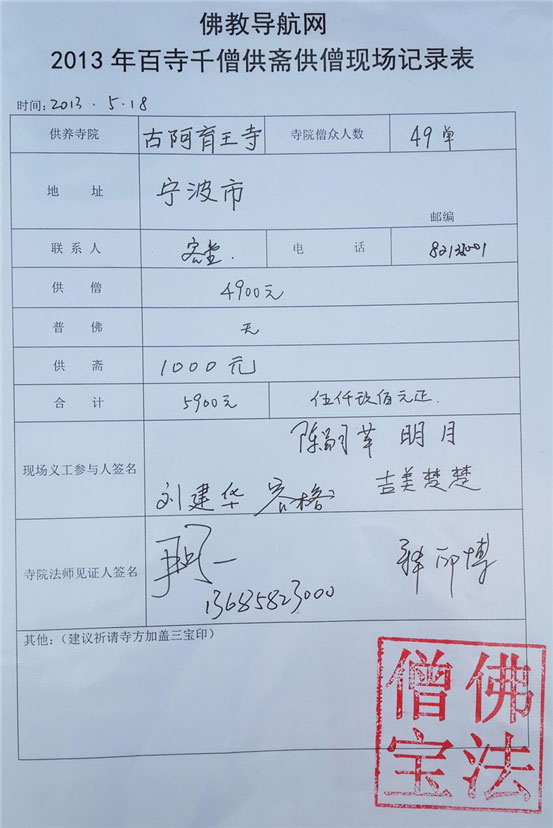 佛教导航网
2013年百寺千僧供斋供僧现场记录表
时间:2013.5.18
供养寺院 古阿育王寺 寺院僧众人数 49单
地 址 宁波市
邮编
联系人 客堂. 电 话
供 僧 4900元
普 佛 无
供 斋 1000元
合 计 5900元 伍仟玖佰元正.
明月
现场义工参与人签名 吉美楚楚
刘建华
寺院法师见证人签名 释印博
13685823000
其他:(建议祈请寺方加盖三宝印)
佛法僧宝